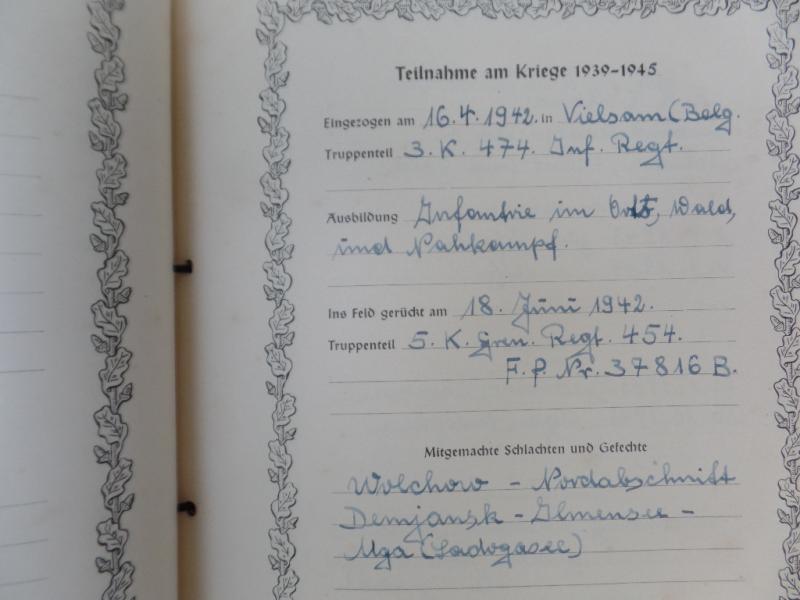 Teilnahme am Kriege 1939-1945
Eingezogen am 16.4.1942. in Vielsam (Belg.
Truppenteil 3. K. 474. Inf. Regt.
Ausbildung Infantrie im Orts, Wald,
und Nahkampf.
Ins Feld gerückt am 18. Juni 1942.
Truppenteil 5. K. Gren. Regt. 454.
F. P. Nr. 37816 B.
Mitgemachte Schlachten und Gefechte
Wolchow - Nordabschnitt
Demjansk - Ilmensee -
Mga (Ladogasee)